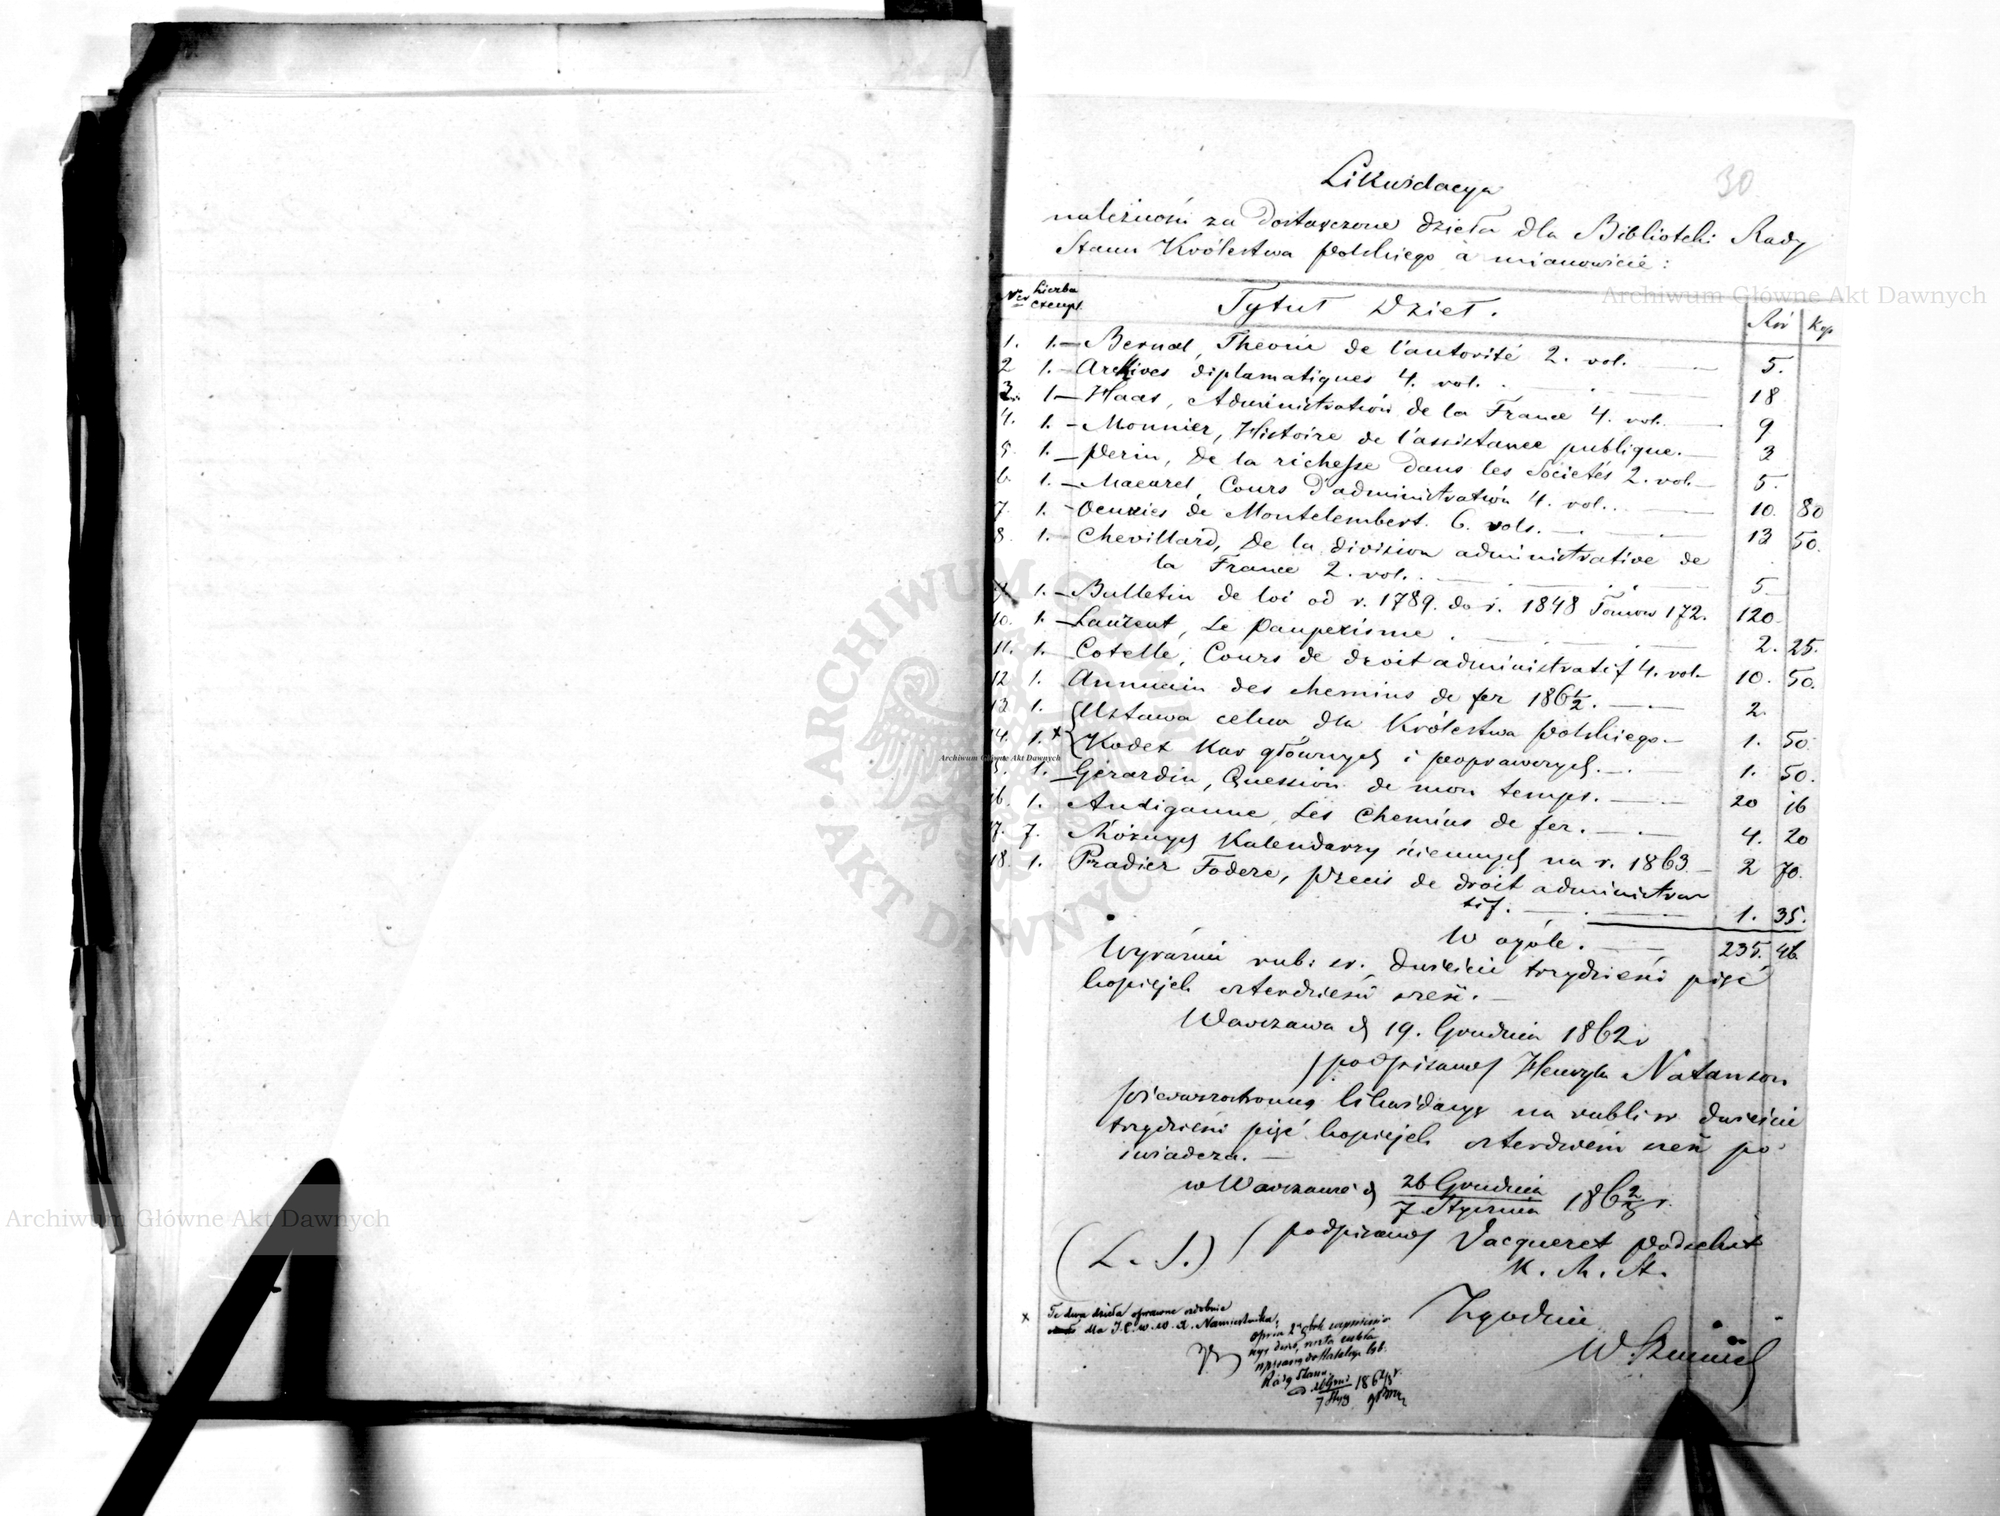 30
Likwidacya
należności za dostarczone dzieła dla Biblioteki Rady
Stanu Królestwa Polskiego a mianowicie:
Nr Liczba exempl. Tytuł Dzieł. Rsr Kop
1. 1.— Bernal, Théorie de l'autorité 2. vol. 5.
2 1.— Archives diplomatiques 4. vol. 18
3. 1— Haas, Administration de la France 4. vol. 9
4. 1.— Monnier, Histoire de l'assistance publique.— 3
5. 1.— Perin, de la richesse dans les Societés 2. vol.— 5.
6. 1.— Macarel, Cours d'administration 4. vol. 10. 80
7. 1.— Oeuvres de Montelembert. 6. vols. 13 50.
8. 1.— Chevillard, De la division administrative de
la France 2. vol. 5
9 1.— Bulletin de loi od r. 1789. do r. 1848 Tomow 172. 120.
10. 1.— Laurent, Le Pauperisme. 2. 25.
11. 1.— Cotelle, Cours de droit administratif 4. vol.— 10. 50.
12 1. Annuain des chemins de fer 186½. 2.
13 1. Ustawa celna dla Królestwa Polskiego.— 1. 50.
14. 1.x Kodex Kar głównych i poprawczych. 1. 50.
5. 1.— Girardin, Quession de mon temps. 20 16
16. 1. Audiganne, Les Chemins de fer. 4. 20
17. 7. Różnych Kalendarzy ściennych na r. 1863— 2 70.
18. 1. Pradier Fodere, Precis de droit administra
tif. 1. 35.
W ogóle. 235. 46.
Wyraźnie rub: sr. dwieście trzydzieści pięć
kopiejek czterdzieści sześć.—
Warszawa d. 19. Grudnia 1862 r
/podpisano/ Henryk Natanson
Powierzchowną likwidacyę na rubli sr dwieście
trzydzieści pięć kopiejek czterdzieści sześć po-
świadcza.—
w Warszawie d. 26 Grudnia / 7 Stycznia 186 2/3 r.
(L. S.) /podpisano/ Jacqueret Podsekret
K. R. St.
Zgodnie
W. 
x Te dwa dzieła oprawne ozdobnie
dla J. C. W. W. X. Namiestnika;
oprócz 2ch
nych dzieł, reszta została
wpisaną do Katalogu bib.
Rady Stanu
d. 26 Grud / 7 Stycz 186 2/3 r.
Archiwum Główne Akt Dawnych
Archiwum Główne Akt Dawnych
Archiwum Główne Akt Dawnych
ARCHIWUM GŁÓWNE AKT DAWNYCH